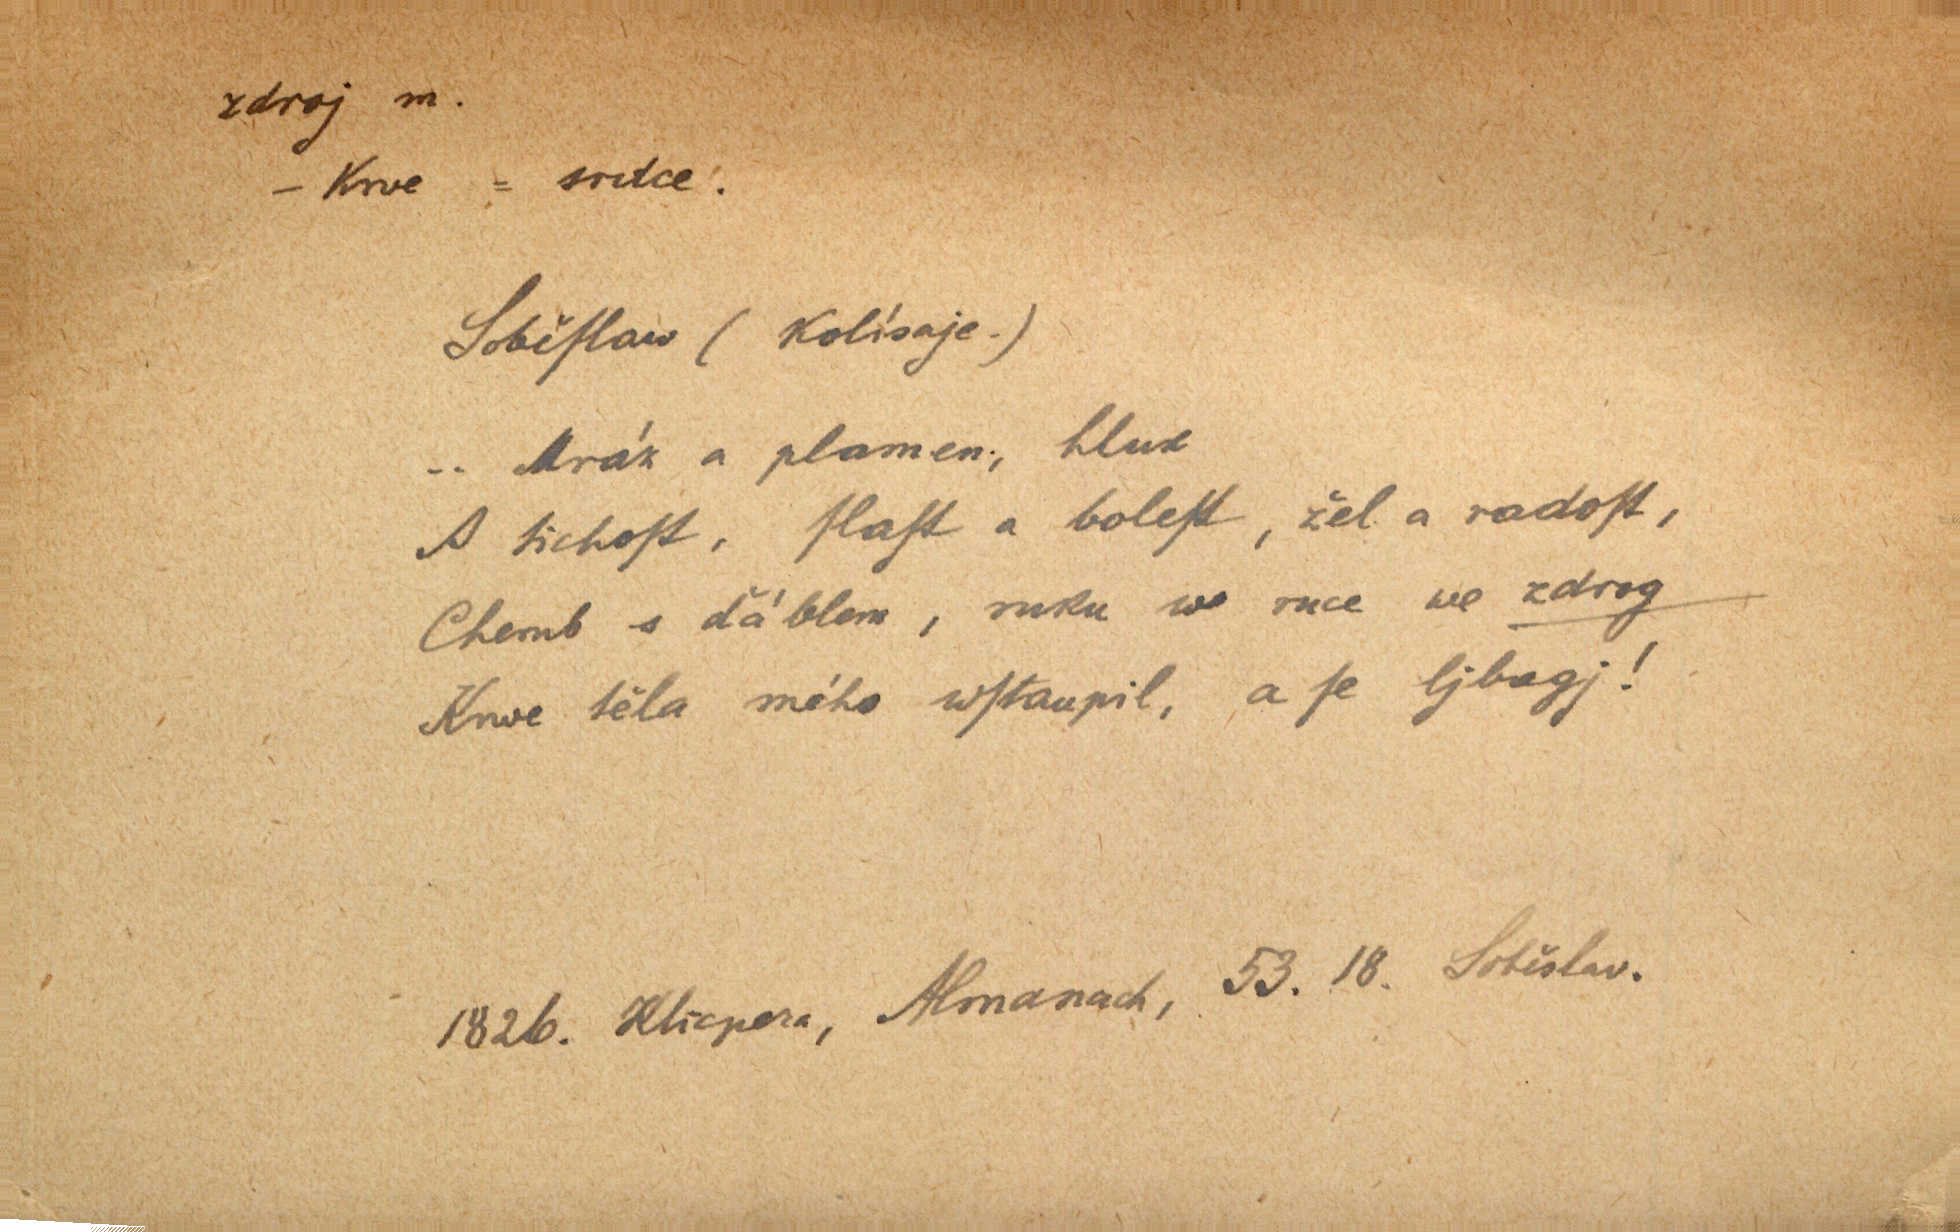 zdroj m.
– Krve = srdce.
Soběſlaw (Kolísaje.)
.. Mráz a plamen, hluk
A tichoſt, ſlaſt a boleſt, žel a radoſt,
Cherub s ďáblem, ruku we ruce we zdrog
Krwe těla mého wſtaupil, a ſe ljbagj!
1826. Klicpera, Almanach, 53. 18. Soběslav.